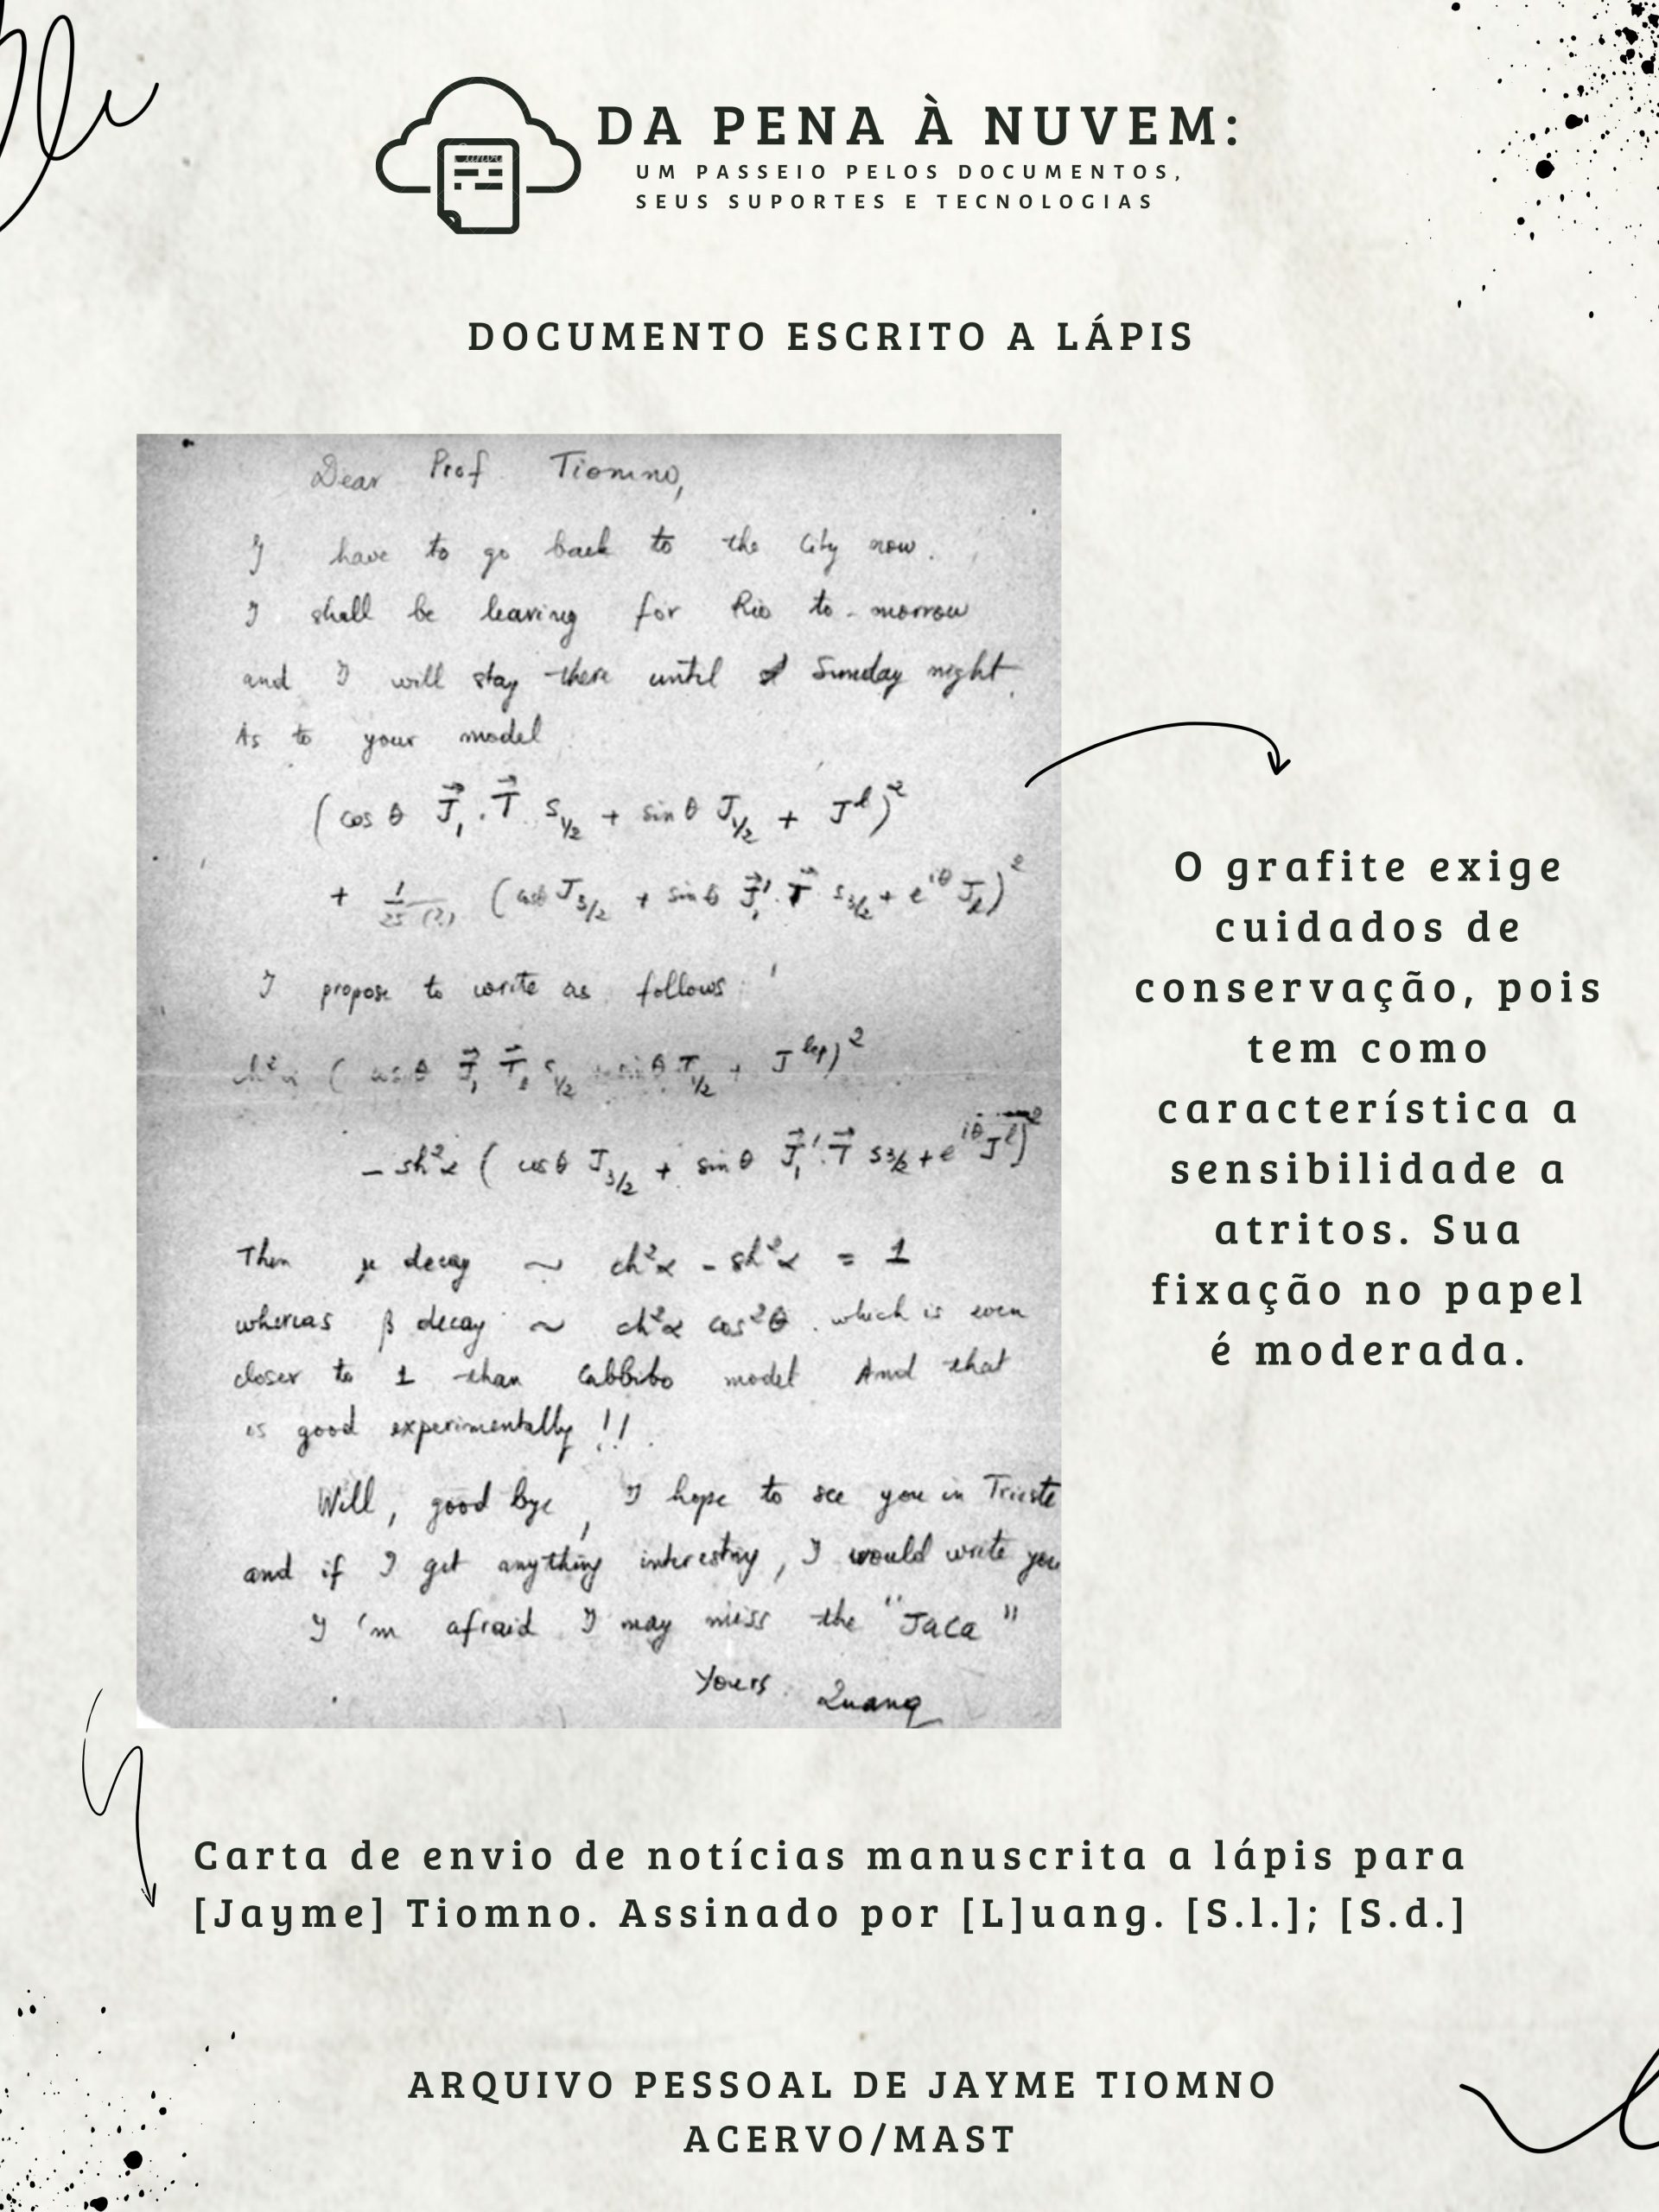 DA PENA À NUVEM:
UM PASSEIO PELOS DOCUMENTOS,
SEUS SUPORTES E TECNOLOGIAS
DOCUMENTO ESCRITO A LÁPIS
Dear Prof Tiomno,
I have to go back to the City now.
I shall be leaving for Rio to-morrow
and I will stay there until Sunday night.
As to your model
(cos θ J⃗₁ . T⃗ S₁/₂ + sin θ J₁/₂ + Jˡ)²
+ 1/25 (?) (cosθ J₃/₂ + sin θ J⃗₁' . T⃗ S₃/₂ + e^iθ Jₗ)²
I propose to write as follows
ch²α ( cos θ J⃗₁ T⃗ S₁/₂ + sin θ J₁/₂ + J^lep)²
– sh²α ( cos θ J₃/₂ + sin θ J⃗₁' . T⃗ S3/2 + e^iθ J^l)²
Then μ decay ~ ch²α - sh²α = 1
whereas β decay ~ ch²α cos²θ . which is even
closer to 1 than Cabbibo model And that
is good experimentally !!
Will, good bye, I hope to see you in Trieste
and if I get anything interesting, I would write you
I 'm afraid I may miss the "Jaca"
Yours Quang
O grafite exige
cuidados de
conservação, pois
tem como
característica a
sensibilidade a
atritos. Sua
fixação no papel
é moderada.
Carta de envio de notícias manuscrita a lápis para
[Jayme] Tiomno. Assinado por [L]uang. [S.l.]; [S.d.]
ARQUIVO PESSOAL DE JAYME TIOMNO
ACERVO/MAST